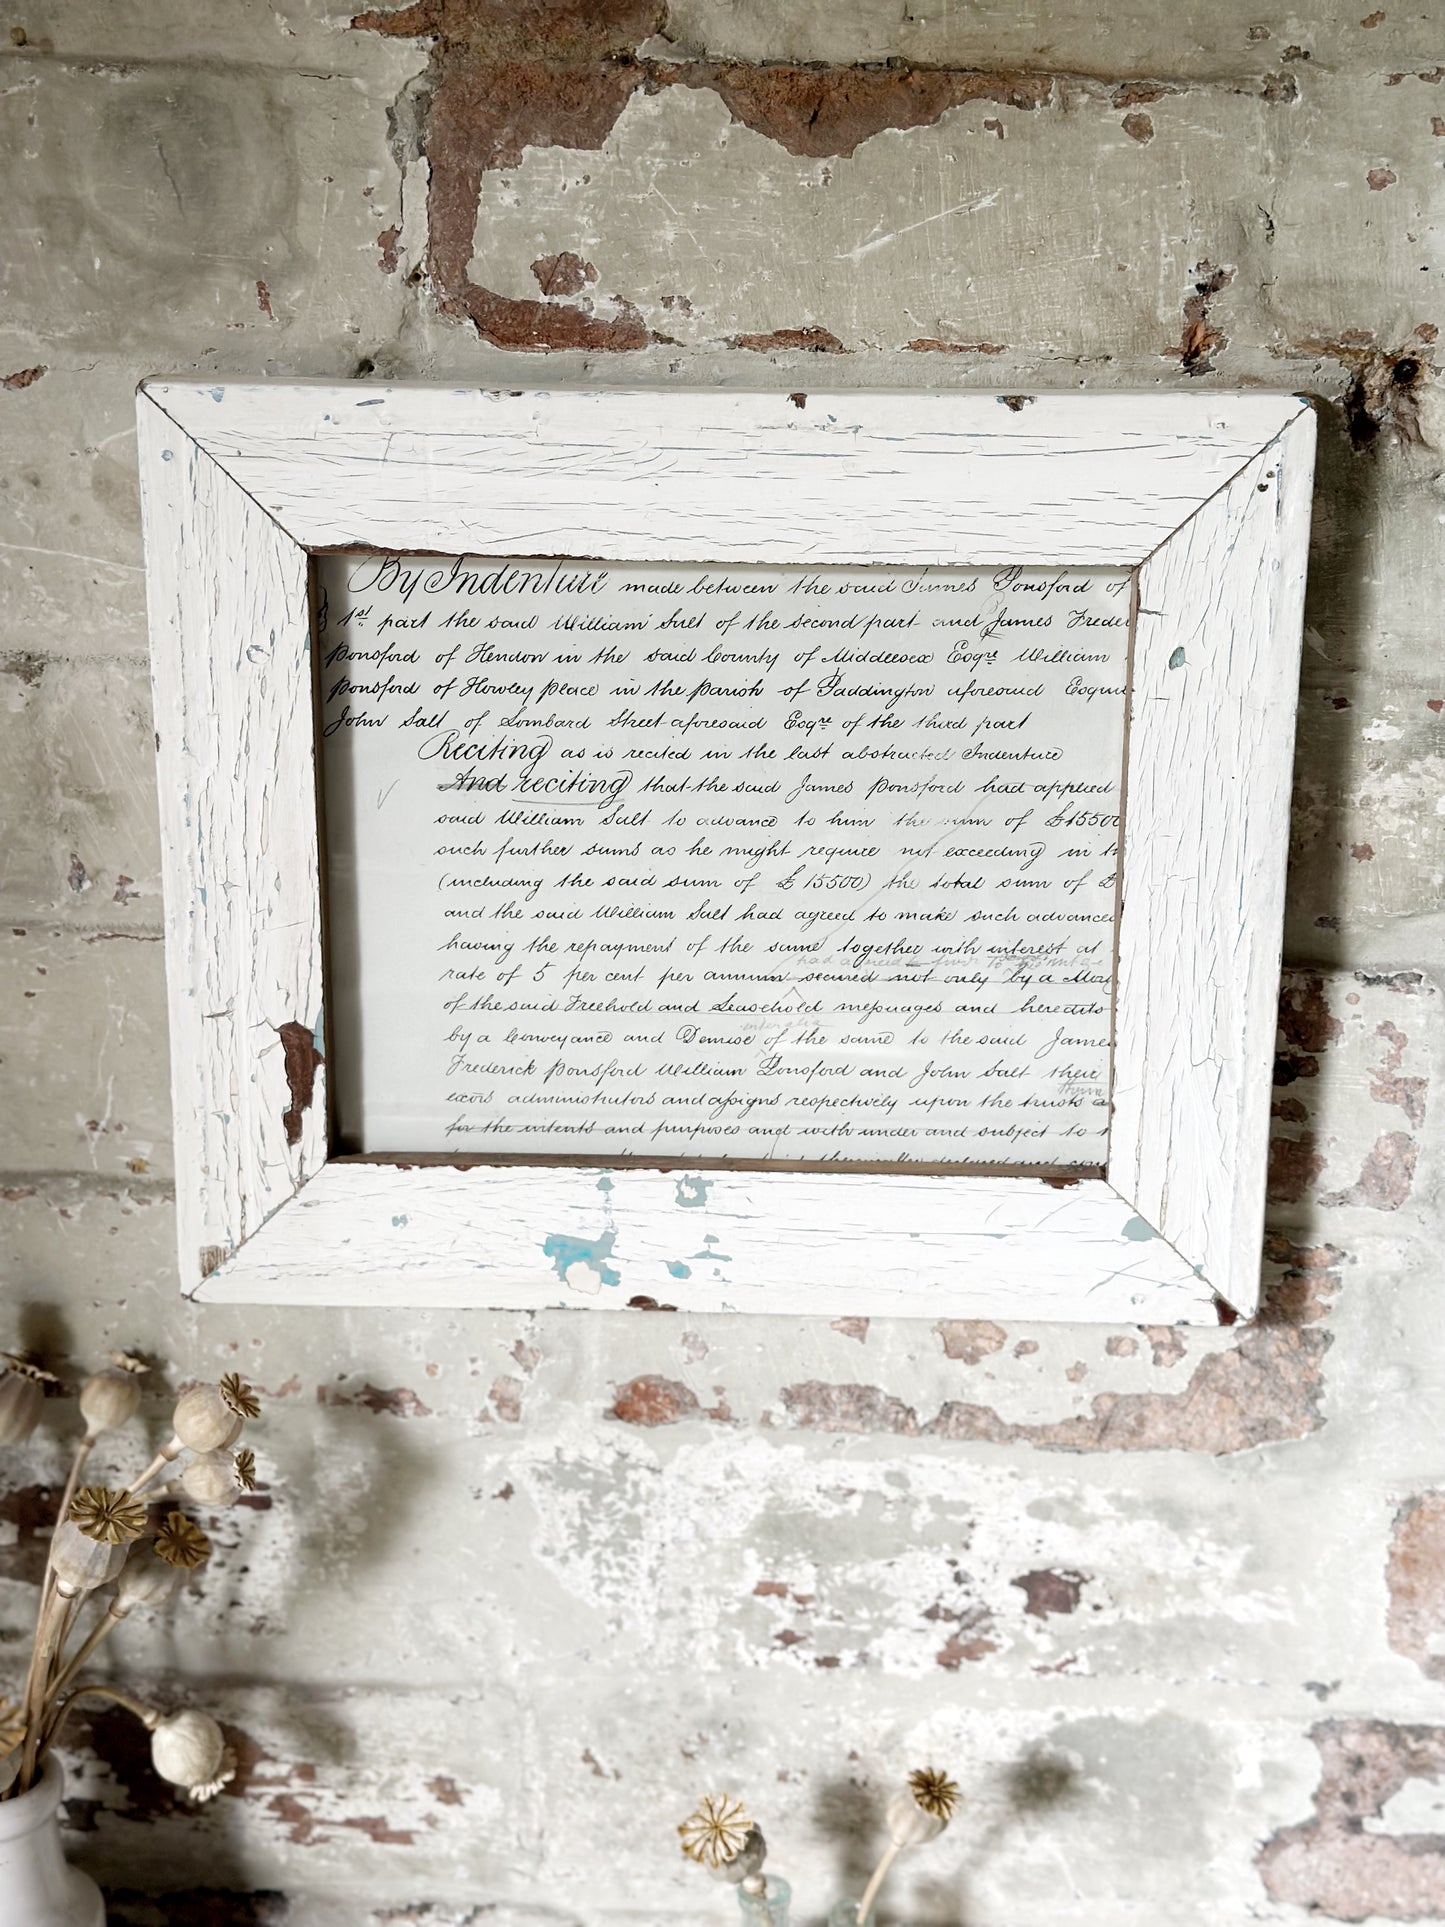 By Indenture made between the said James Ponsford of
1st part the said William Salt of the second part and James Freder
Ponsford of Hendon in the said County of Middlesex Esqre William
Ponsford of Howley place in the parish of Paddington aforesaid Esqui
John Salt of Lombard Street aforesaid Esqre of the third part
Reciting as is recited in the last abstracted Indenture
And reciting that the said James Ponsford had applied
said William Salt to advance to him the sum of £15500
such further sums as he might require not exceeding in th
(including the said sum of £15500) the total sum of £
and the said William Salt had agreed to make such advances
having the repayment of the same together with interest at
had agreed
rate of 5 per cent per annum secured not only by a Mort
of the said Freehold and Leasehold messuages and heredits
inter alia
by a Conveyance and Demise of the same to the said James
Frederick Ponsford William Ponsford and John Salt their
exors administrators and assigns respectively upon the trusts a
for the intents and purposes and with under and subject to t
declared and